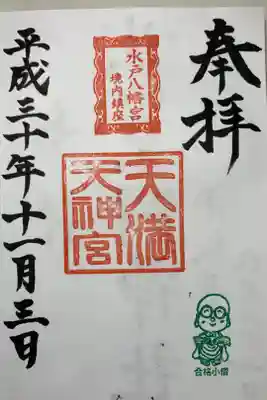 奉拝
水戸八幡宮
境内鎮座
天満
天神宮
合格小僧
平成三十年十一月三日